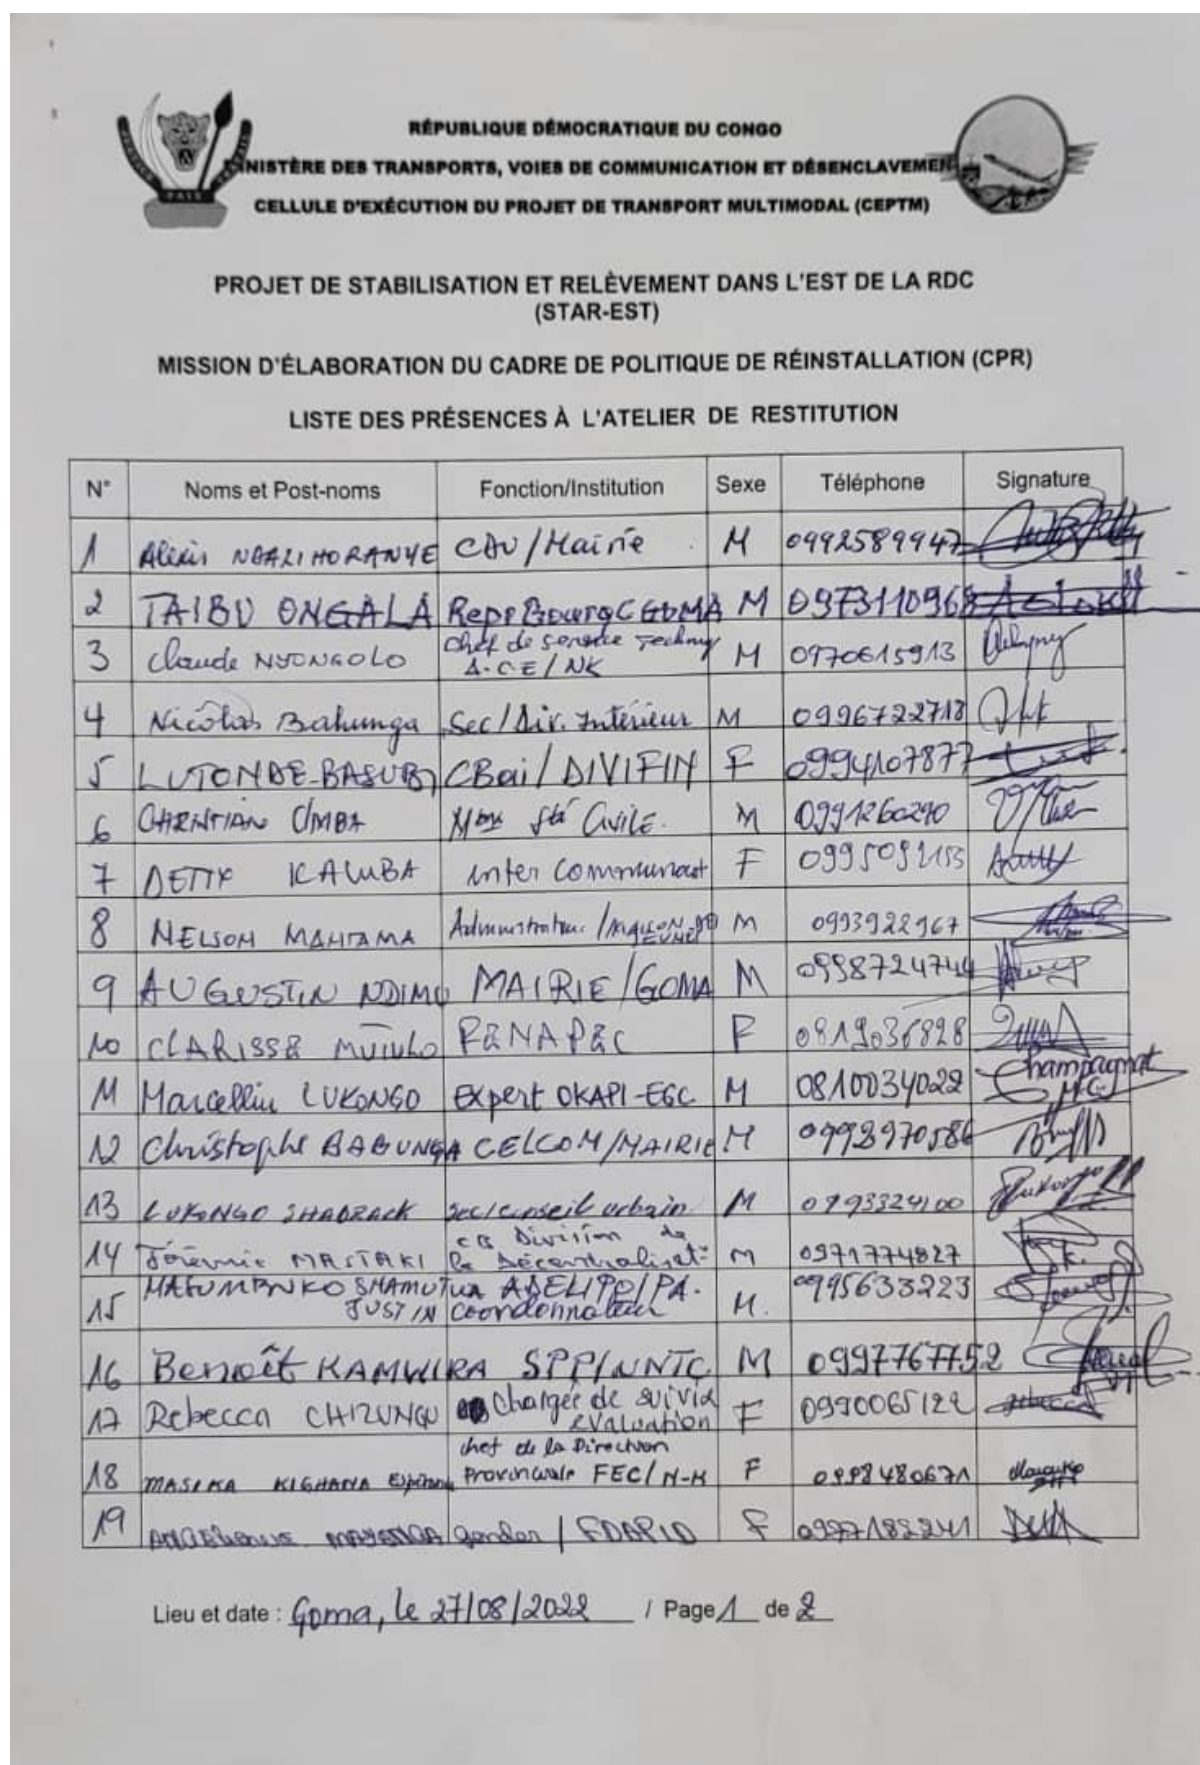 RÉPUBLIQUE DÉMOCRATIQUE DU CONGO
MINISTÈRE DES TRANSPORTS, VOIES DE COMMUNICATION ET DÉSENCLAVEMENT
CELLULE D'EXÉCUTION DU PROJET DE TRANSPORT MULTIMODAL (CEPTM)
PROJET DE STABILISATION ET RELÈVEMENT DANS L'EST DE LA RDC
(STAR-EST)
MISSION D'ÉLABORATION DU CADRE DE POLITIQUE DE RÉINSTALLATION (CPR)
LISTE DES PRÉSENCES À L'ATELIER DE RESTITUTION
N° Noms et Post-noms Fonction/Institution Sexe Téléphone Signature
1 Alexis CAU/Mairie M 0992589947
2 TAIBU ONGALA M 097311096
3 Claude NYONGOLO Chef de service Techny A.C.E/NK M 0970615913
4 Nicolas Bahunga Sec/Div. Intérieur M 0996722718
5 LUTONDE-BASUBI CBai/DIVIFIN F 0994107877
6 CHRISTIAN CIMBA Mbre Sté Civile. M 0991260290
7 DETTY KALUBA inter Communaut F 0995092153
8 NELSON MAHTAMA M 0993922967
9 AUGUSTIN NDIMU MAIRIE/GOMA M 0998724744
10 CLARISSE FENAPEC F 0819036828
11 Marcellin LUKONGO Expert OKAPI-EGC M 0810034022 Champagnat
12 Christophe BABUNGA CELCOM/MAIRIE M 0992970586
13 LUKONGO SHADRACK sec/conseil urbain M 0793324100
14 Jérémie MASTAKI CB Division de la Décentralisat° M 0971774827
15 SHAMUTWA JUSTIN ADELIPO/PA. coordonnateur M. 0995633223
16 Benoît KAMWIRA SPP/UNTC M 0997767752
17 Rebecca CHIZUNGU Chargée de suivi & evaluation F 0990065122
18 MASIKA KIGHANA chef de la Direction Provinciale FEC/N-K F 0998480671
19 MAYENGA gender / F 0997183241
Lieu et date : Goma, le 27/08/2022 / Page 1 de 2